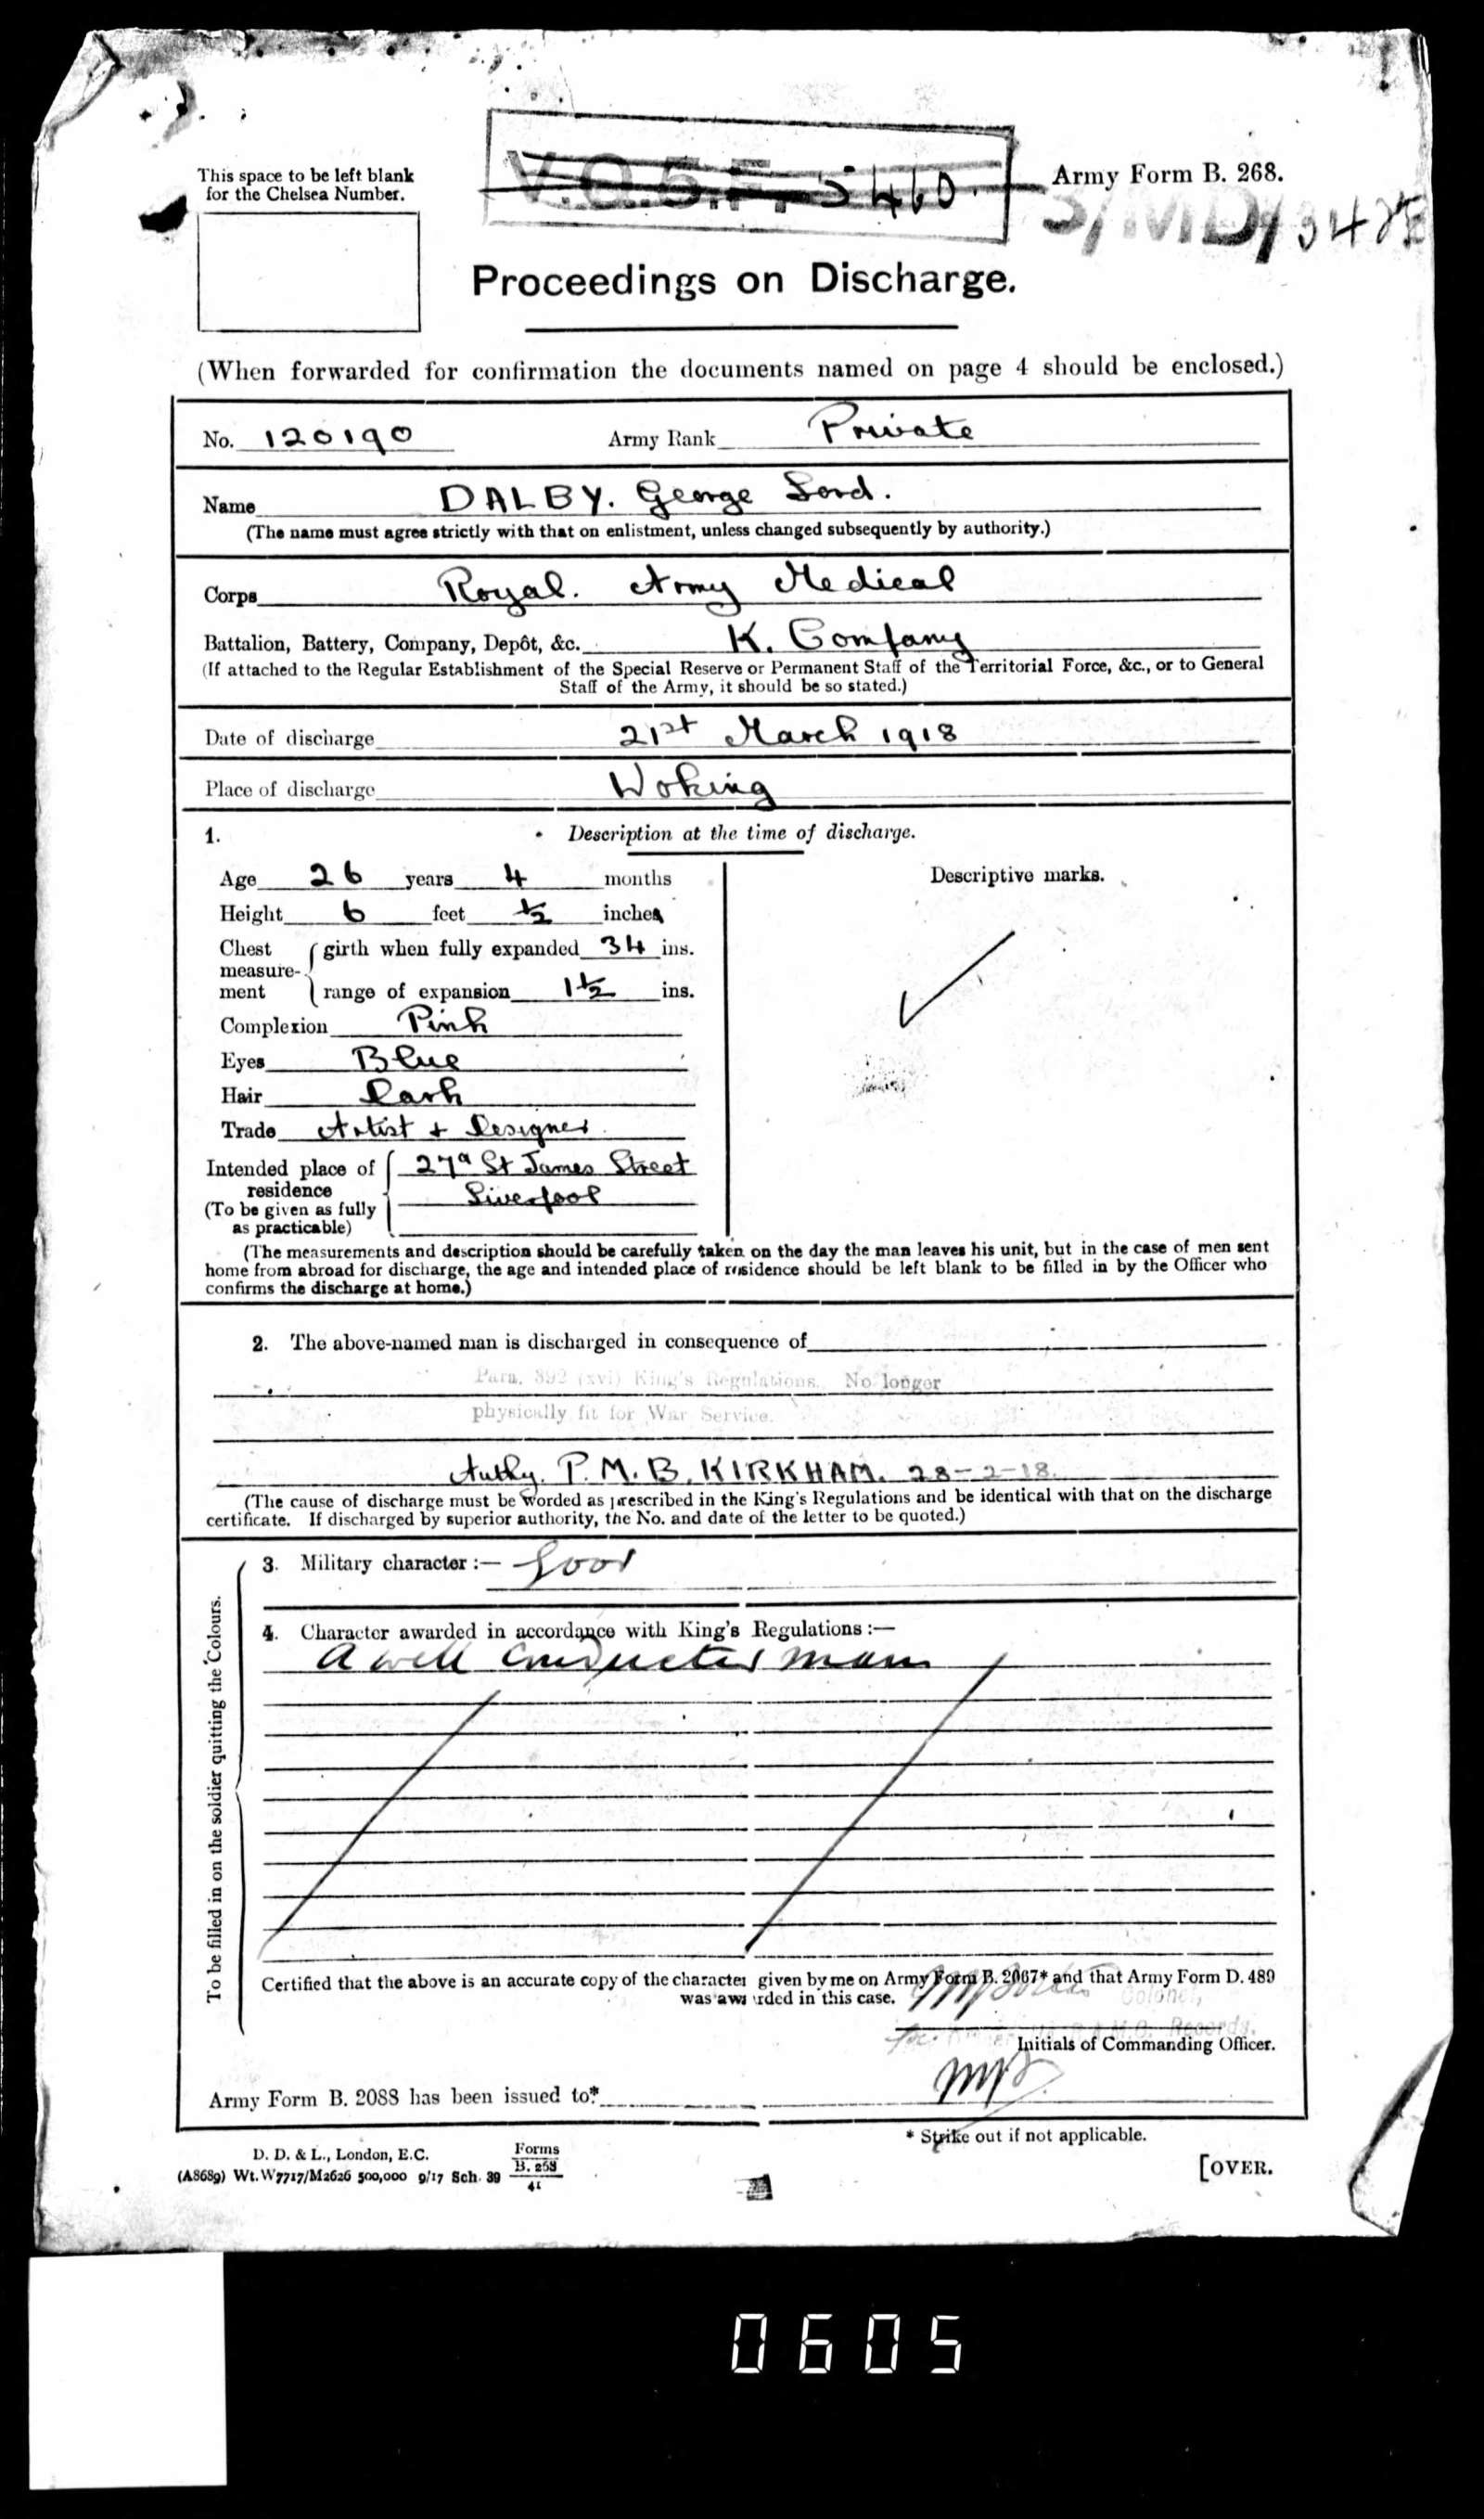 This space to be left blank
for the Chelsea Number.
V.O.5.F. 5460.
Army Form B. 268.
S/MD/
Proceedings on Discharge.
(When forwarded for confirmation the documents named on page 4 should be enclosed.)
No. 120190 Army Rank Private
Name DALBY. George Lord.
(The name must agree strictly with that on enlistment, unless changed subsequently by authority.)
Corps Royal. Army Medical
Battalion, Battery, Company, Depôt, &c. K. Company
(If attached to the Regular Establishment of the Special Reserve or Permanent Staff of the Territorial Force, &c., or to General
Staff of the Army, it should be so stated.)
Date of discharge 21st March 1918
Place of discharge Woking
1. Description at the time of discharge.
Age 26 years 4 months
Descriptive marks.
Height 6 feet ½ inches
Chest measure-ment girth when fully expanded 34 ins.
range of expansion 1½ ins.
Complexion Pink
Eyes Blue
Hair Dark
Trade Artist + Designer
Intended place of residence 27a St James Street
Liverpool
(To be given as fully
as practicable)
(The measurements and description should be carefully taken on the day the man leaves his unit, but in the case of men sent
home from abroad for discharge, the age and intended place of residence should be left blank to be filled in by the Officer who
confirms the discharge at home.)
2. The above-named man is discharged in consequence of
Para. 392 (xvi) King's Regulations. No longer
physically fit for War Service.
Authy. P.M.B. KIRKHAM. 28-2-18.
(The cause of discharge must be worded as prescribed in the King's Regulations and be identical with that on the discharge
certificate. If discharged by superior authority, the No. and date of the letter to be quoted.)
To be filled in on the soldier quitting the Colours.
3. Military character :— Good
4. Character awarded in accordance with King's Regulations :—
A well conducted man
Certified that the above is an accurate copy of the character given by me on Army Form B. 2067* and that Army Form D. 489
was awarded in this case.
Colonel,
Records.
Initials of Commanding Officer.
Army Form B. 2088 has been issued to*
* Strike out if not applicable.
D. D. & L., London, E.C.
(A8689) Wt. W7717/M2626 500,000 9/17 Sch. 39 Forms B. 268 41
[OVER.
0605